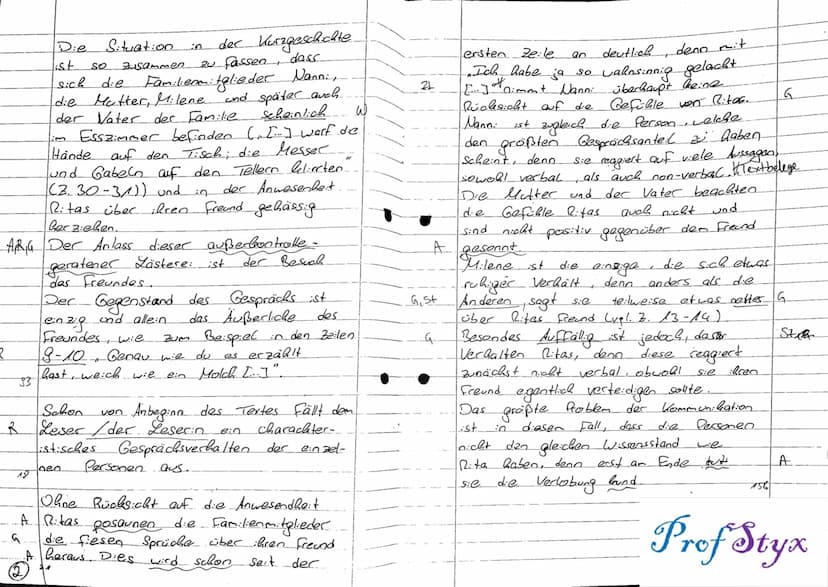 Die Situation in der Kurzgeschichte
ist so zusammen zu fassen, dass
sich die Familienmitglieder Nanni,
die Mutter, Milene und später auch
der Vater der Familie scheinlich W
im Esszimmer befinden („[...] warf die
Hände auf den Tisch; die Messer
und Gabeln auf den Tellern klirrten"
(Z. 30-31)) und in der Anwesenheit
Ritas über ihren Freund gehässig
herziehen.
A,R,G Der Anlass dieser außerkontrolle-
geratener Lästerei ist der Besuch
des Freundes.
Der Gegenstand des Gesprächs ist
einzig und allein das Äußerliche des
Freundes, wie zum Beispiel in den Zeilen
R 9-10 „Genau wie du es erzählt
hast, weich wie ein Molch [...]".
93
Schon von Anbeginn des Textes Fällt dem
R Leser / der Leserin ein charachter-
istisches Gesprächsverhalten der einzel-
18 nen Personen aus.
Ohne Rücksicht auf die Anwesendheit
A Ritas posaunen die Familienmitglieder
G die fiesen Sprüche über ihren Freund
A heraus. Dies wird schon seit der
2
ersten Zeile an deutlich, denn mit
„Ich habe ja so wahnsinnig gelacht
21 [...]" nimmt Nanni überhaupt keine
Rücksicht auf die Gefühle von Ritas. G
Nanni ist zugleich die Person, welche
den größten Gesprächsanteil zu haben
scheint, denn sie reagiert auf viele Aussagen,
sowohl verbal, als auch non-verbal. Textbelege
Die Mutter und der Vater beachten
die Gefühle Ritas auch nicht und
sind nicht positiv gegenüber dem Freund
A gesonnt.
Milene ist die einzige, die sich etwas
ruhiger Verhält, denn anders als die
G, St Anderen, sagt sie teilweise etwas nettes G
über Ritas Freund (vgl. Z. 13-14)
G Besondes Auffällig ist jedoch, dass
Verhalten Ritas, denn diese reagiert
zunächst nicht verbal, obwohl sie ihren
Freund egentlich verteidigen sollte.
Das größte Problem der Kommunikation
ist in diesem Fall, dass die Personen
nicht den gleichen Wissensstand wie
Rita haben, denn erst am Ende tut A
sie die Verlobung kund. 156
ProfStyx